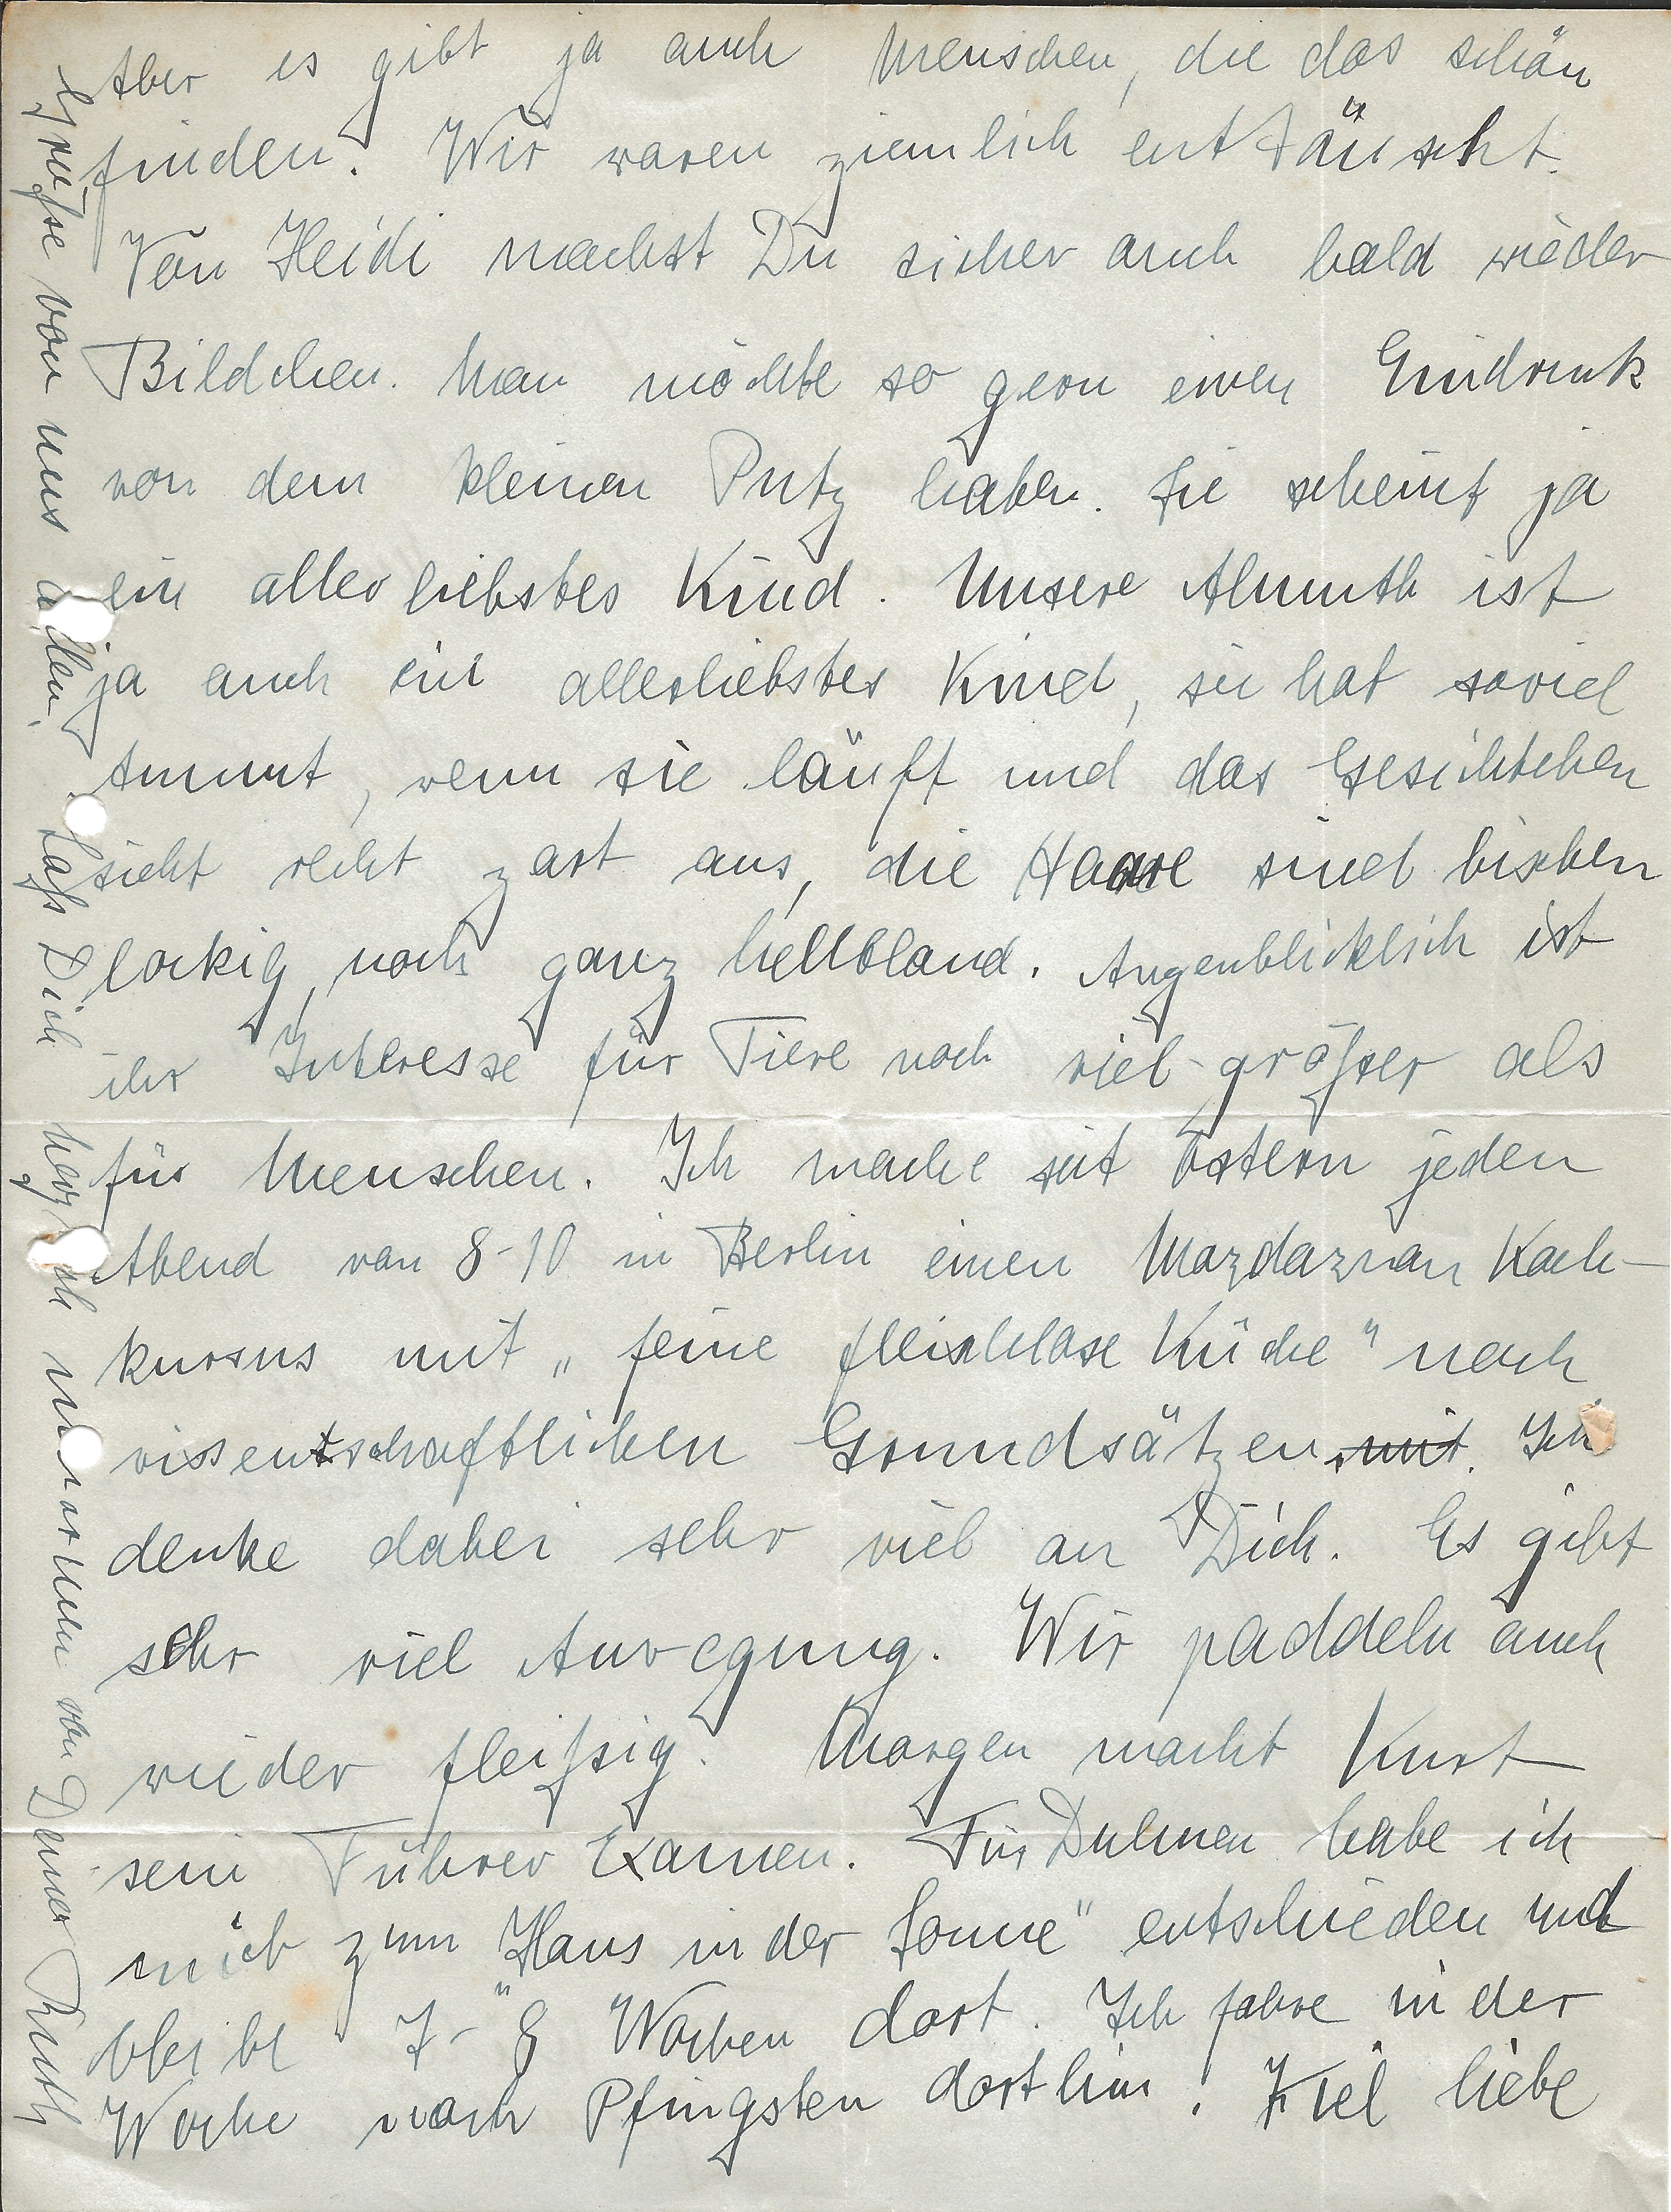 Aber es gibt ja auch Menschen, die das schön
finden. Wir waren ziemlich enttäuscht.
Von Heidi machst Du sicher auch bald wieder
Bildchen. Man möchte so gern einen Eindruck
von dem kleinen Putz haben. Sie scheint ja
ein allerliebstes Kind. Unsere Almuth ist
ja auch ein allerliebstes Kind, sie hat soviel
Anmut, wenn sie läuft und das Gesichtchen
sieht recht zart aus, die Haare sind bischen
lockig, noch ganz hellblond. Augenblicklich ist
ihr Interesse für Tiere noch viel größer als
für Menschen. Ich mache seit Ostern jeden
Abend von 8-10 in Berlin einen Mazdaznan Koch-
kursus mit „feine fleischlose Küche" nach
wissenschaftlichen Grundsätzen mit. Ich
denke dabei sehr viel an Dich. Es gibt
sehr viel Anregung. Wir paddeln auch
wieder fleißig. Morgen macht Kurt
sein Führer Examen. Für Dulmen habe ich
mich zum „Haus in der Sonne" entschieden und
bleibe 7-8 Wochen dort. Ich fahre in der
Woche nach Pfingsten dorthin. Viel liebe
Grüße von uns allen. Laß Dich herzlich umarmen von Deiner Ruth